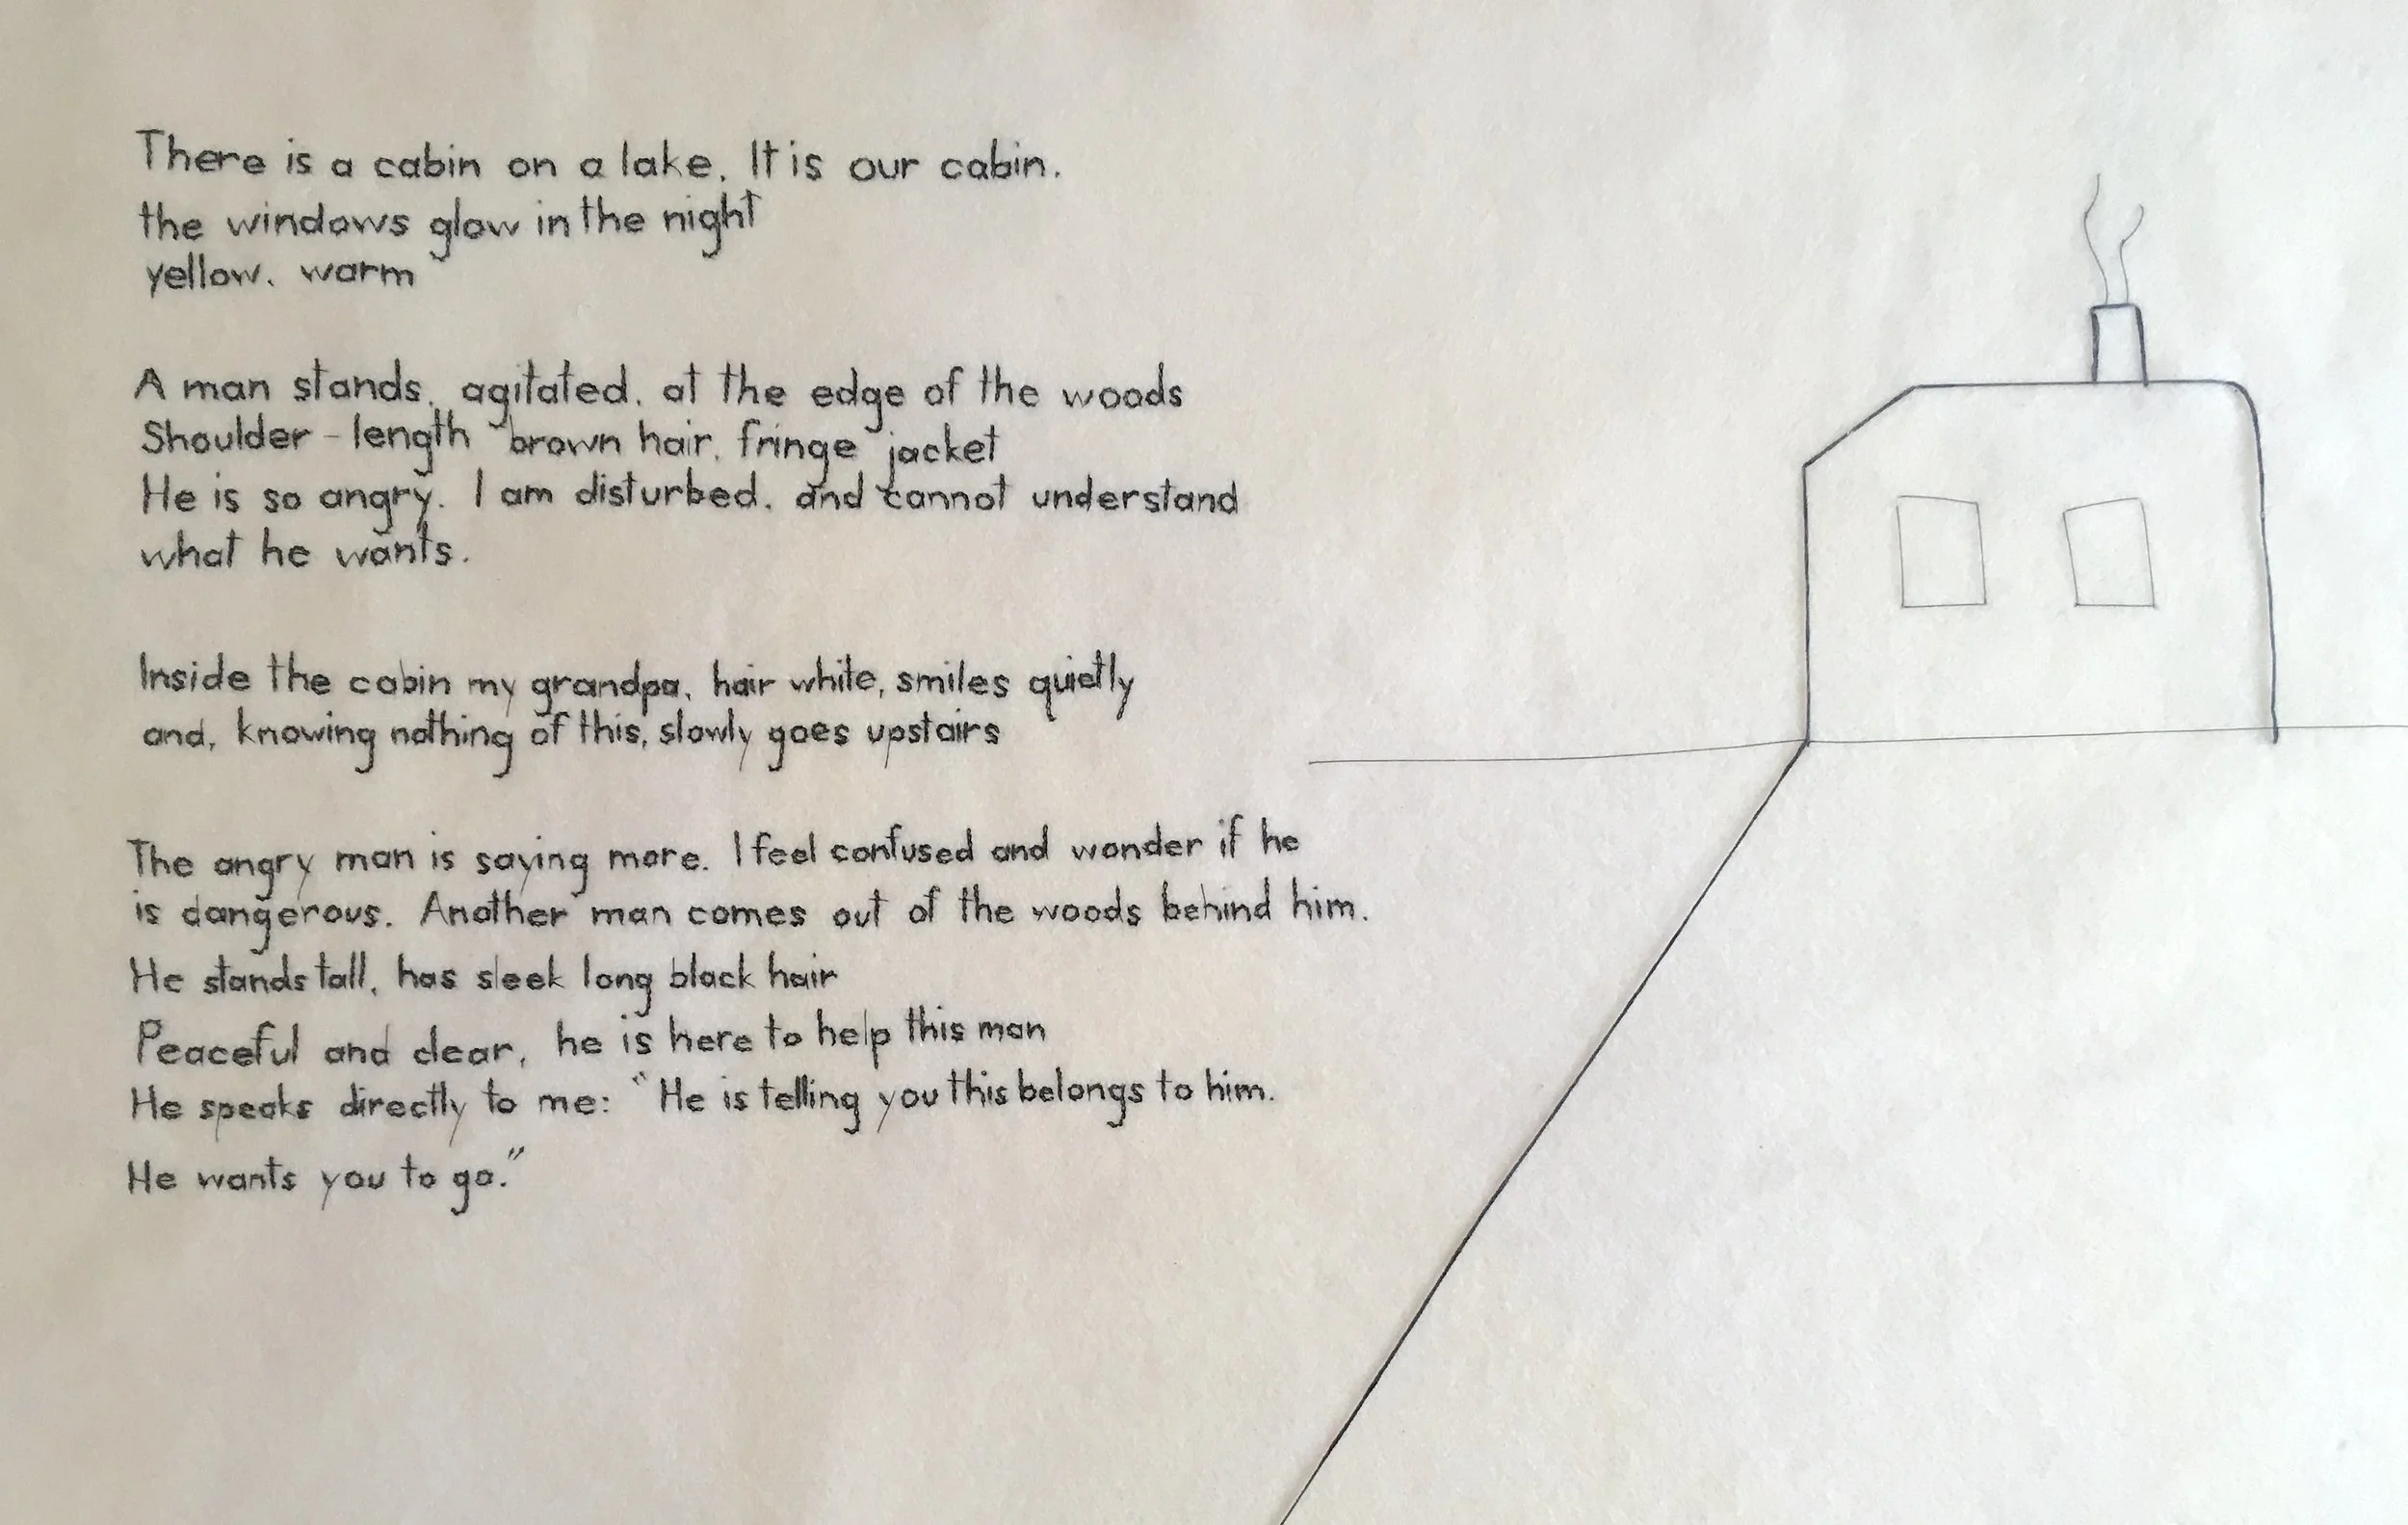 There is a cabin on a lake. It is our cabin.
the windows glow in the night
yellow. warm
A man stands, agitated, at the edge of the woods
Shoulder-length brown hair, fringe jacket
He is so angry. I am disturbed, and cannot understand
what he wants.
Inside the cabin my grandpa, hair white, smiles quietly
and, knowing nothing of this, slowly goes upstairs
The angry man is saying more. I feel confused and wonder if he
is dangerous. Another man comes out of the woods behind him.
He stands tall, has sleek long black hair
Peaceful and clear, he is here to help this man
He speaks directly to me: "He is telling you this belongs to him.
He wants you to go."